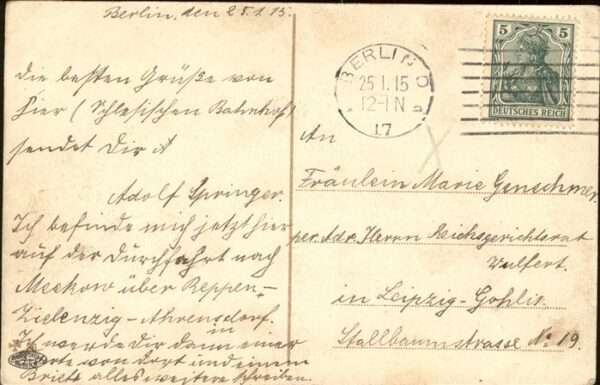 Berlin, den 25.1.15.
die besten Grüße von
hier (Schlesischen Bahnhof)
sendet Dir
Adolf Springer.
Ich befinde mich jetzt hier
auf der Durchfahrt nach
Meekow über Reppen-
Zielenzig-Ahrensdorf.
Ich werde Dir dann in einer
Karte von dort und einem
Briefe alles weitere schreiben.
BERLIN O
25.1.15
12-1 N
17
5 5
DEUTSCHES REICH
An
Fräulein Marie Genschmer.
per Adr. Herrn Reichsgerichtsrat
Wulfert.
in Leipzig-Gohlis.
Stallbaumstrasse No 19.